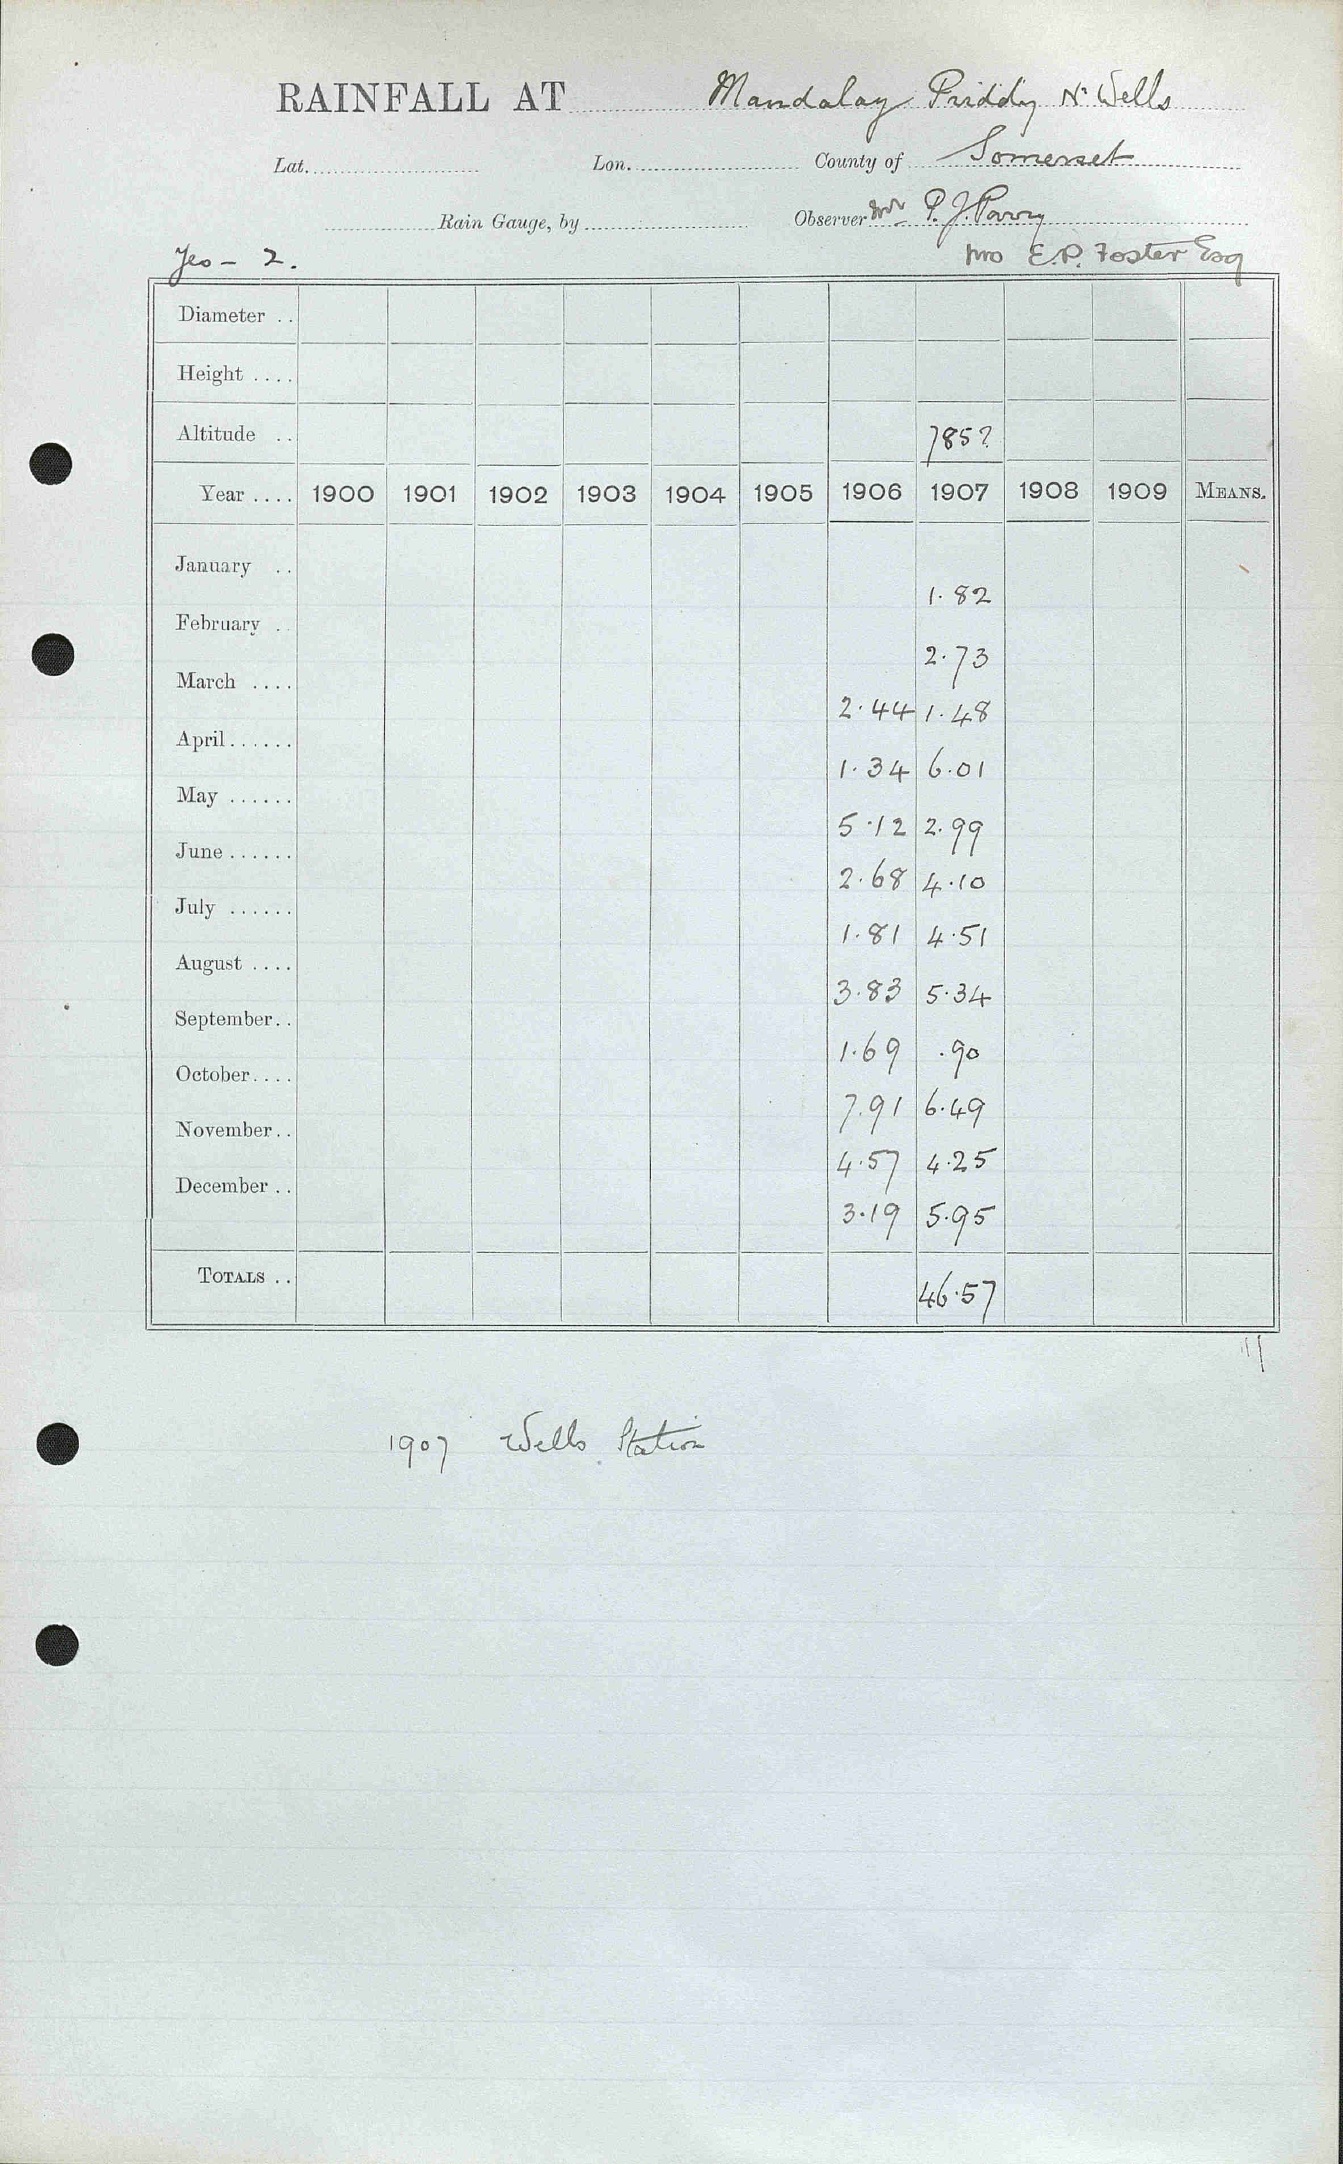 RAINFALL AT Mandalay Priddy Nr Wells
Lat. Lon. County of Somerset
Rain Gauge, by Observer Mr P. J. Parry
Yeo - 2. pro E.P. Foster Esq
Diameter ..
Height ....
Altitude .. 785?
Year .... 1900 1901 1902 1903 1904 1905 1906 1907 1908 1909 MEANS.
January ..
1.82
February ..
2.73
March ....
2.44 1.48
April......
1.34 6.01
May ......
5.12 2.99
June ......
2.68 4.10
July ......
1.81 4.51
August ....
3.83 5.34
September..
1.69 .90
October....
7.91 6.49
November..
4.57 4.25
December ..
3.19 5.95
TOTALS .. 46.57
1907 Wells Station